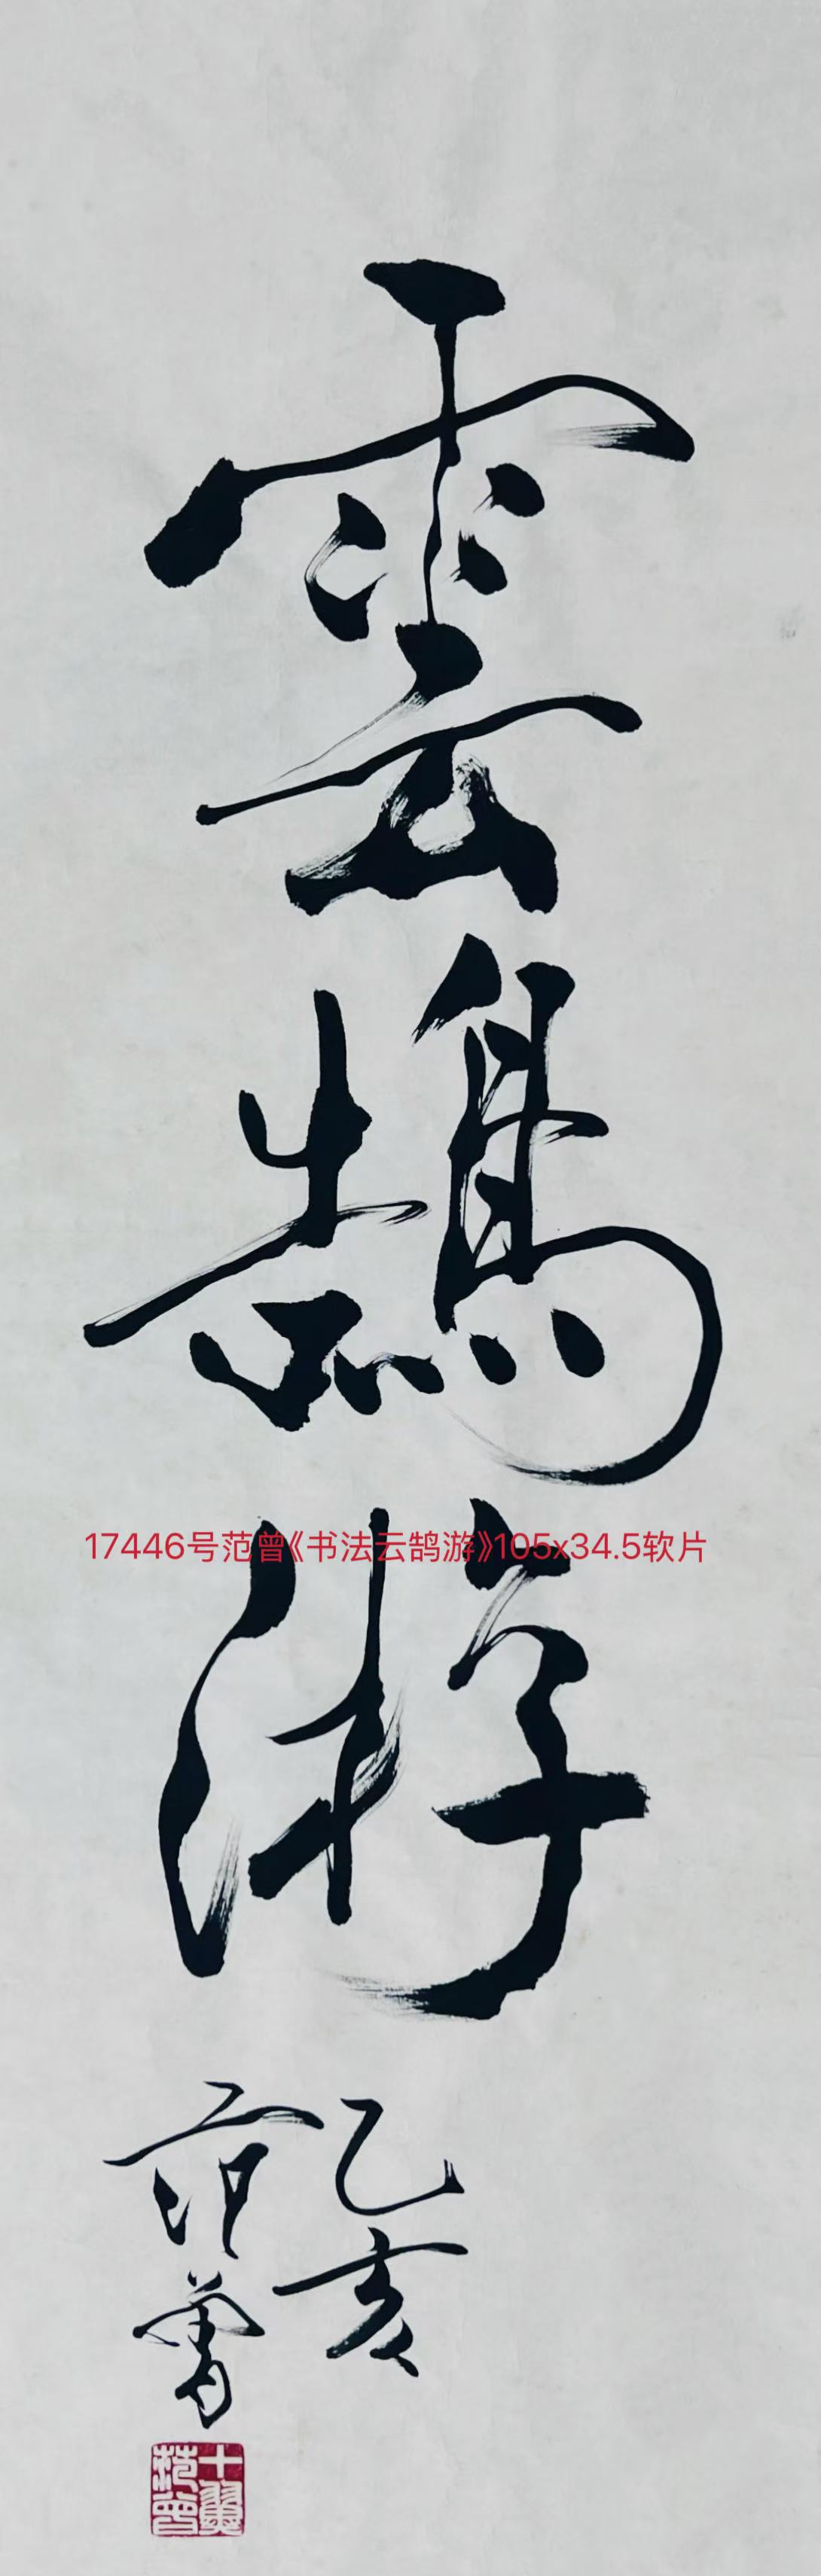 雲鹄游
17446号范曾《书法云鹄游》105x34.5软片
乙亥
范曾
十翼
范曾